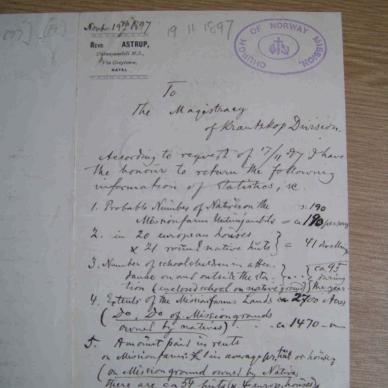 Novbr 19th 1897
19 11 1897
REVD ASTRUP,
Untunjambili M.S.,
Via Greytown,
NATAL
CHURCH OF NORWAY MISSION.
To
The Magistracy
of Krantzkop Division.
According to request of 17/11 97 I have
the honour to return the following
information of statistics, :c.
1. Probable Number of Natives on the
Missionfarm Untunjambili = ca 190 persons
2. in 20 european houses
& 21 round native huts = 41 dwelling
3. Number of school children in atten-
dance on and outside the sta- ca 95
tion (enclosd school on native ground) during the year
4. Extents of the Missionfarms Lands ca 2700 Acres
(Do, Do of Mission grounds
owned by natives) - - ca 1470 -
5. Amount paid in rents
on Missionfarm £1 in average pr hut or house
(on Mission ground owned by Natives
There are ca 54 huts & 4 europ. houses